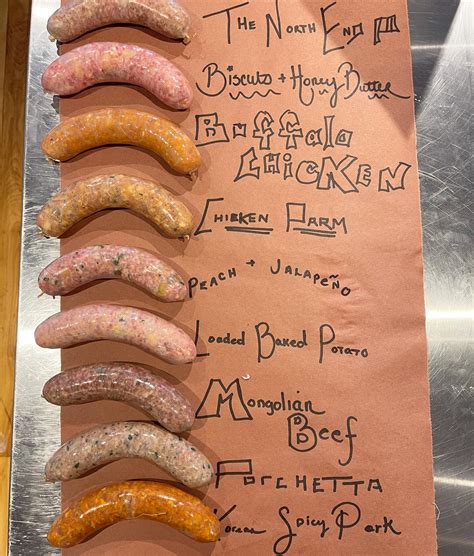 The North End
Biscuts + Honey Butter
Buffalo
Chicken
Chicken Parm
Peach + Jalapeño
Loaded Baked Potato
Mongolian
Beef
Porchetta
Korean Spicy Pork